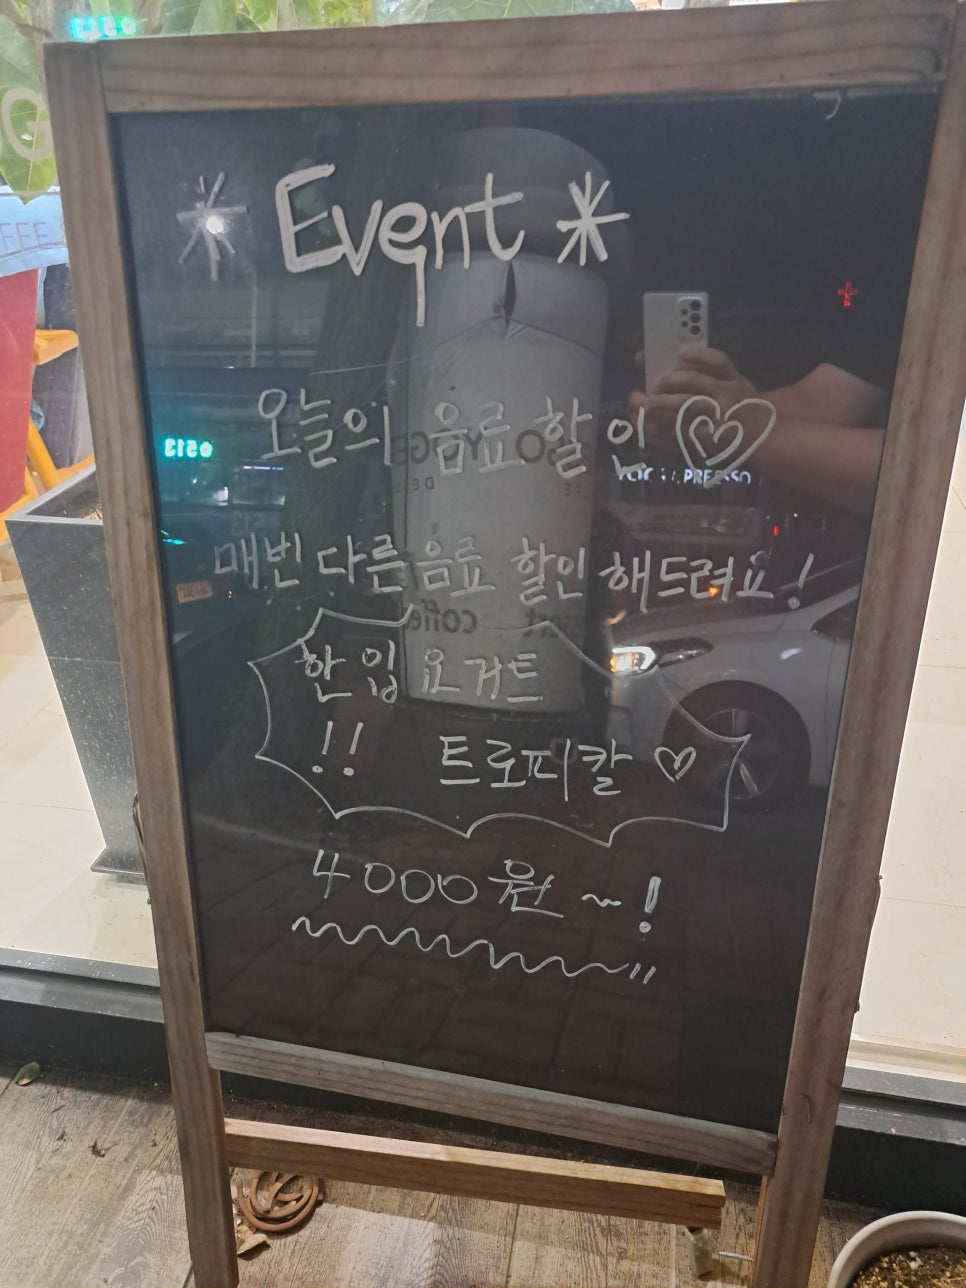 * Event *
오늘의 음료 할인♡
매번 다른 음료 할인 해드려요!
한입 요거트
!! 트로피칼 ♡
4000원~!